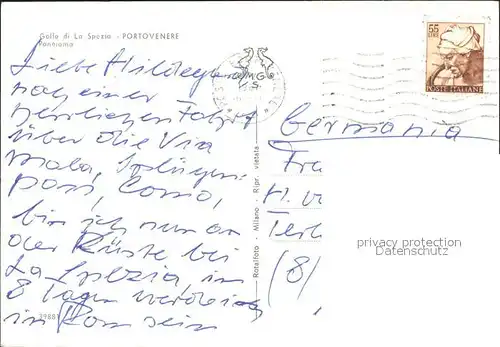 Golfo di La Spezia - PORTOVENERE
Panorama
Liebe Hildegard
nach einer
herrlichen Fahrt
über die Via
Mala, Splügen-
pass, Como,
bin ich nun an
der Küste bei
La Spezia, in
8 Tagen werde ich
in Rom sein
39881
Rotalfoto - Milano - Ripr. vietata
M.G.
S.
55
LIRE
POSTE ITALIANE
Germania
Fra
H. v
Terl
(8)
privacy protection
Datenschutz